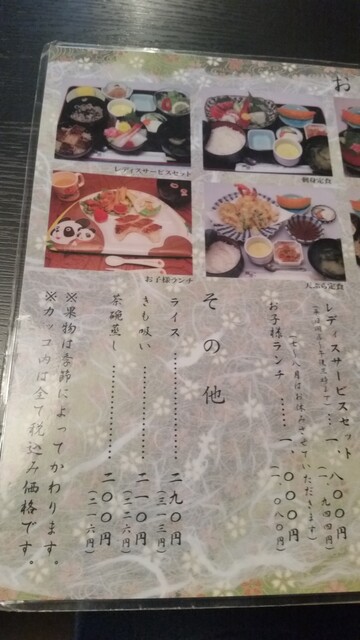 お
レディスサービスセット
刺身定食
お子様ランチ
天ぷら定食
レディスサービスセット……一、八〇〇円
(一、九四四円)
お子様ランチ……一、〇〇〇円
(一、〇八〇円)
その他
ライス……二九〇円
(三一三円)
きも吸い……二一〇円
(二二六円)
茶碗蒸し……二〇〇円
(二一六円)
※果物は季節によってかわります。
※カッコ内は全て税込み価格です。